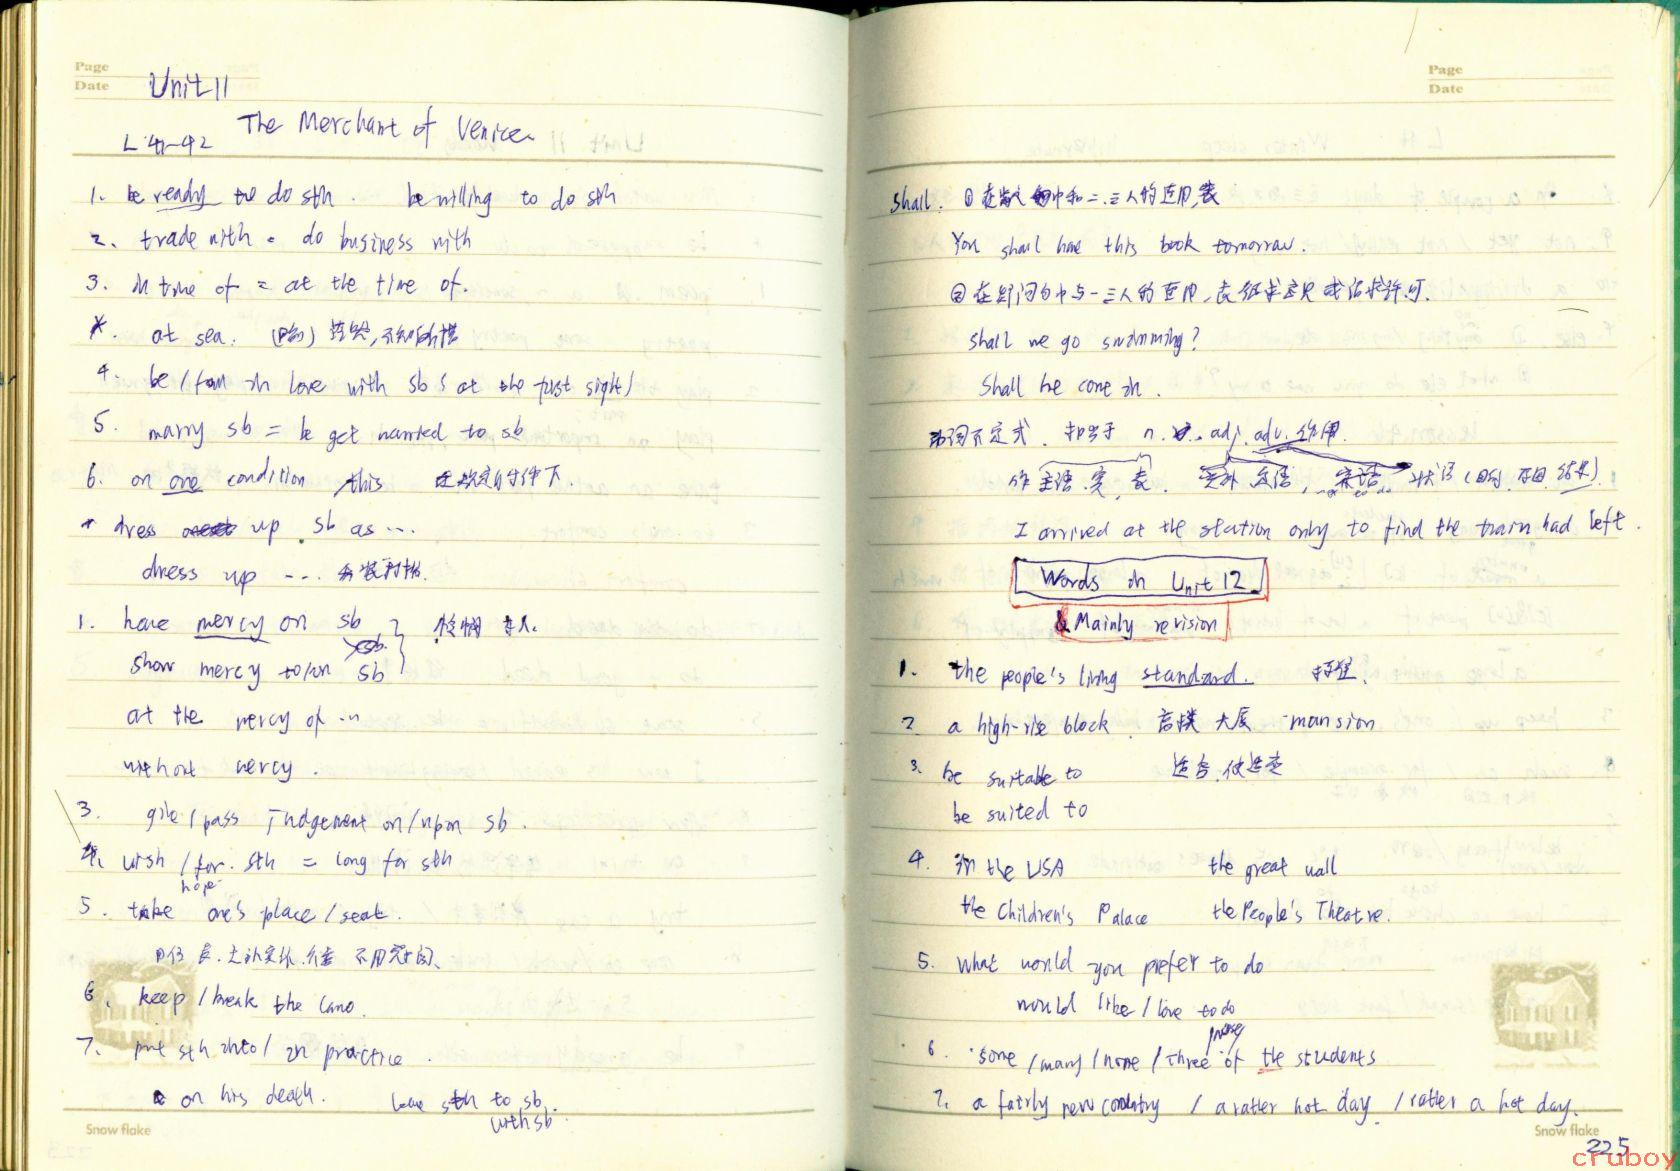 Page
Date
Unit 11
The Merchant of Venice
L 41-42
1. be ready to do sth. be willing to do sth
2. trade with = do business with
3. in time of = at the time of.
*. at sea.
4. be/fall in love with sb (at the first sight)
5. marry sb = be get married to sb
6. on one condition this
* dress up sb as ...
dress up ...
1. have mercy on sb
show mercy to/on sb
at the mercy of ...
without mercy.
3. give/pass judgement on/upon sb.
4. wish/for. sth = long for sth
hope
5. take one's place/seat.
6. keep/break the law.
7. put sth into/in practice.
on his death. leave sth to sb.
with sb.
Snow flake
Page
Date
Shall. ① 中和二.三人的连用,表
You shall have this book tomorrow.
② 在疑问句中与一三人的连用,表征求意见或请求许可.
Shall we go swimming?
Shall he come in.
动词不定式. 相当于 n. adj. adv. 作用.
作主语.宾.表. 宾补 定语, 状语(目的.原因.结果).
I arrived at the station only to find the train had left.
Words in Unit 12
& Mainly revision
1. the people's living standard.
2. a high-rise block. 高楼 大厦 mansion
3. be suitable to 适合,使适应
be suited to
4. in the USA the great wall
the Children's Palace the People's Theatre.
5. What would you prefer to do
would like/love to do
6. some/many/none/three of the students
7. a fairly new country / a rather hot day / rather a hot day.
Snow flake
225
cruboy